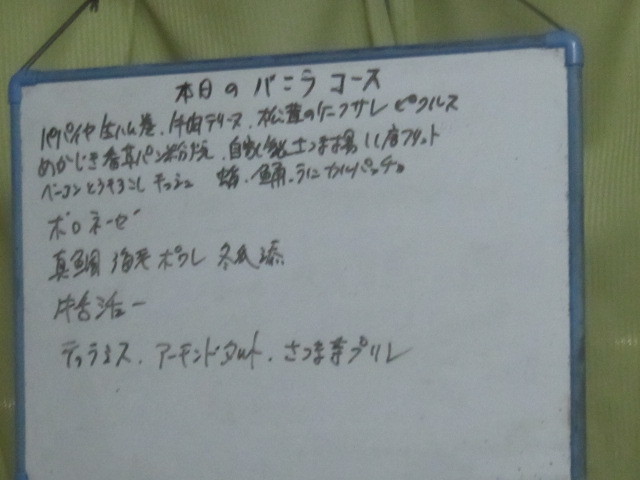 本日のバニラコース
パパイヤ生ハム巻、牛肉テリーヌ、松茸の ピクルス
めかじき香草パン粉焼、自家製さつま揚、 フリット
ベーコンとうもろこしキッシュ 蛸、鮪、うに カルパッチョ
ボロネーゼ
真鯛 海老 ポワレ 冬瓜添
牛舌シチュー
ティラミス、アーモンドタルト、さつま芋ブリュレ